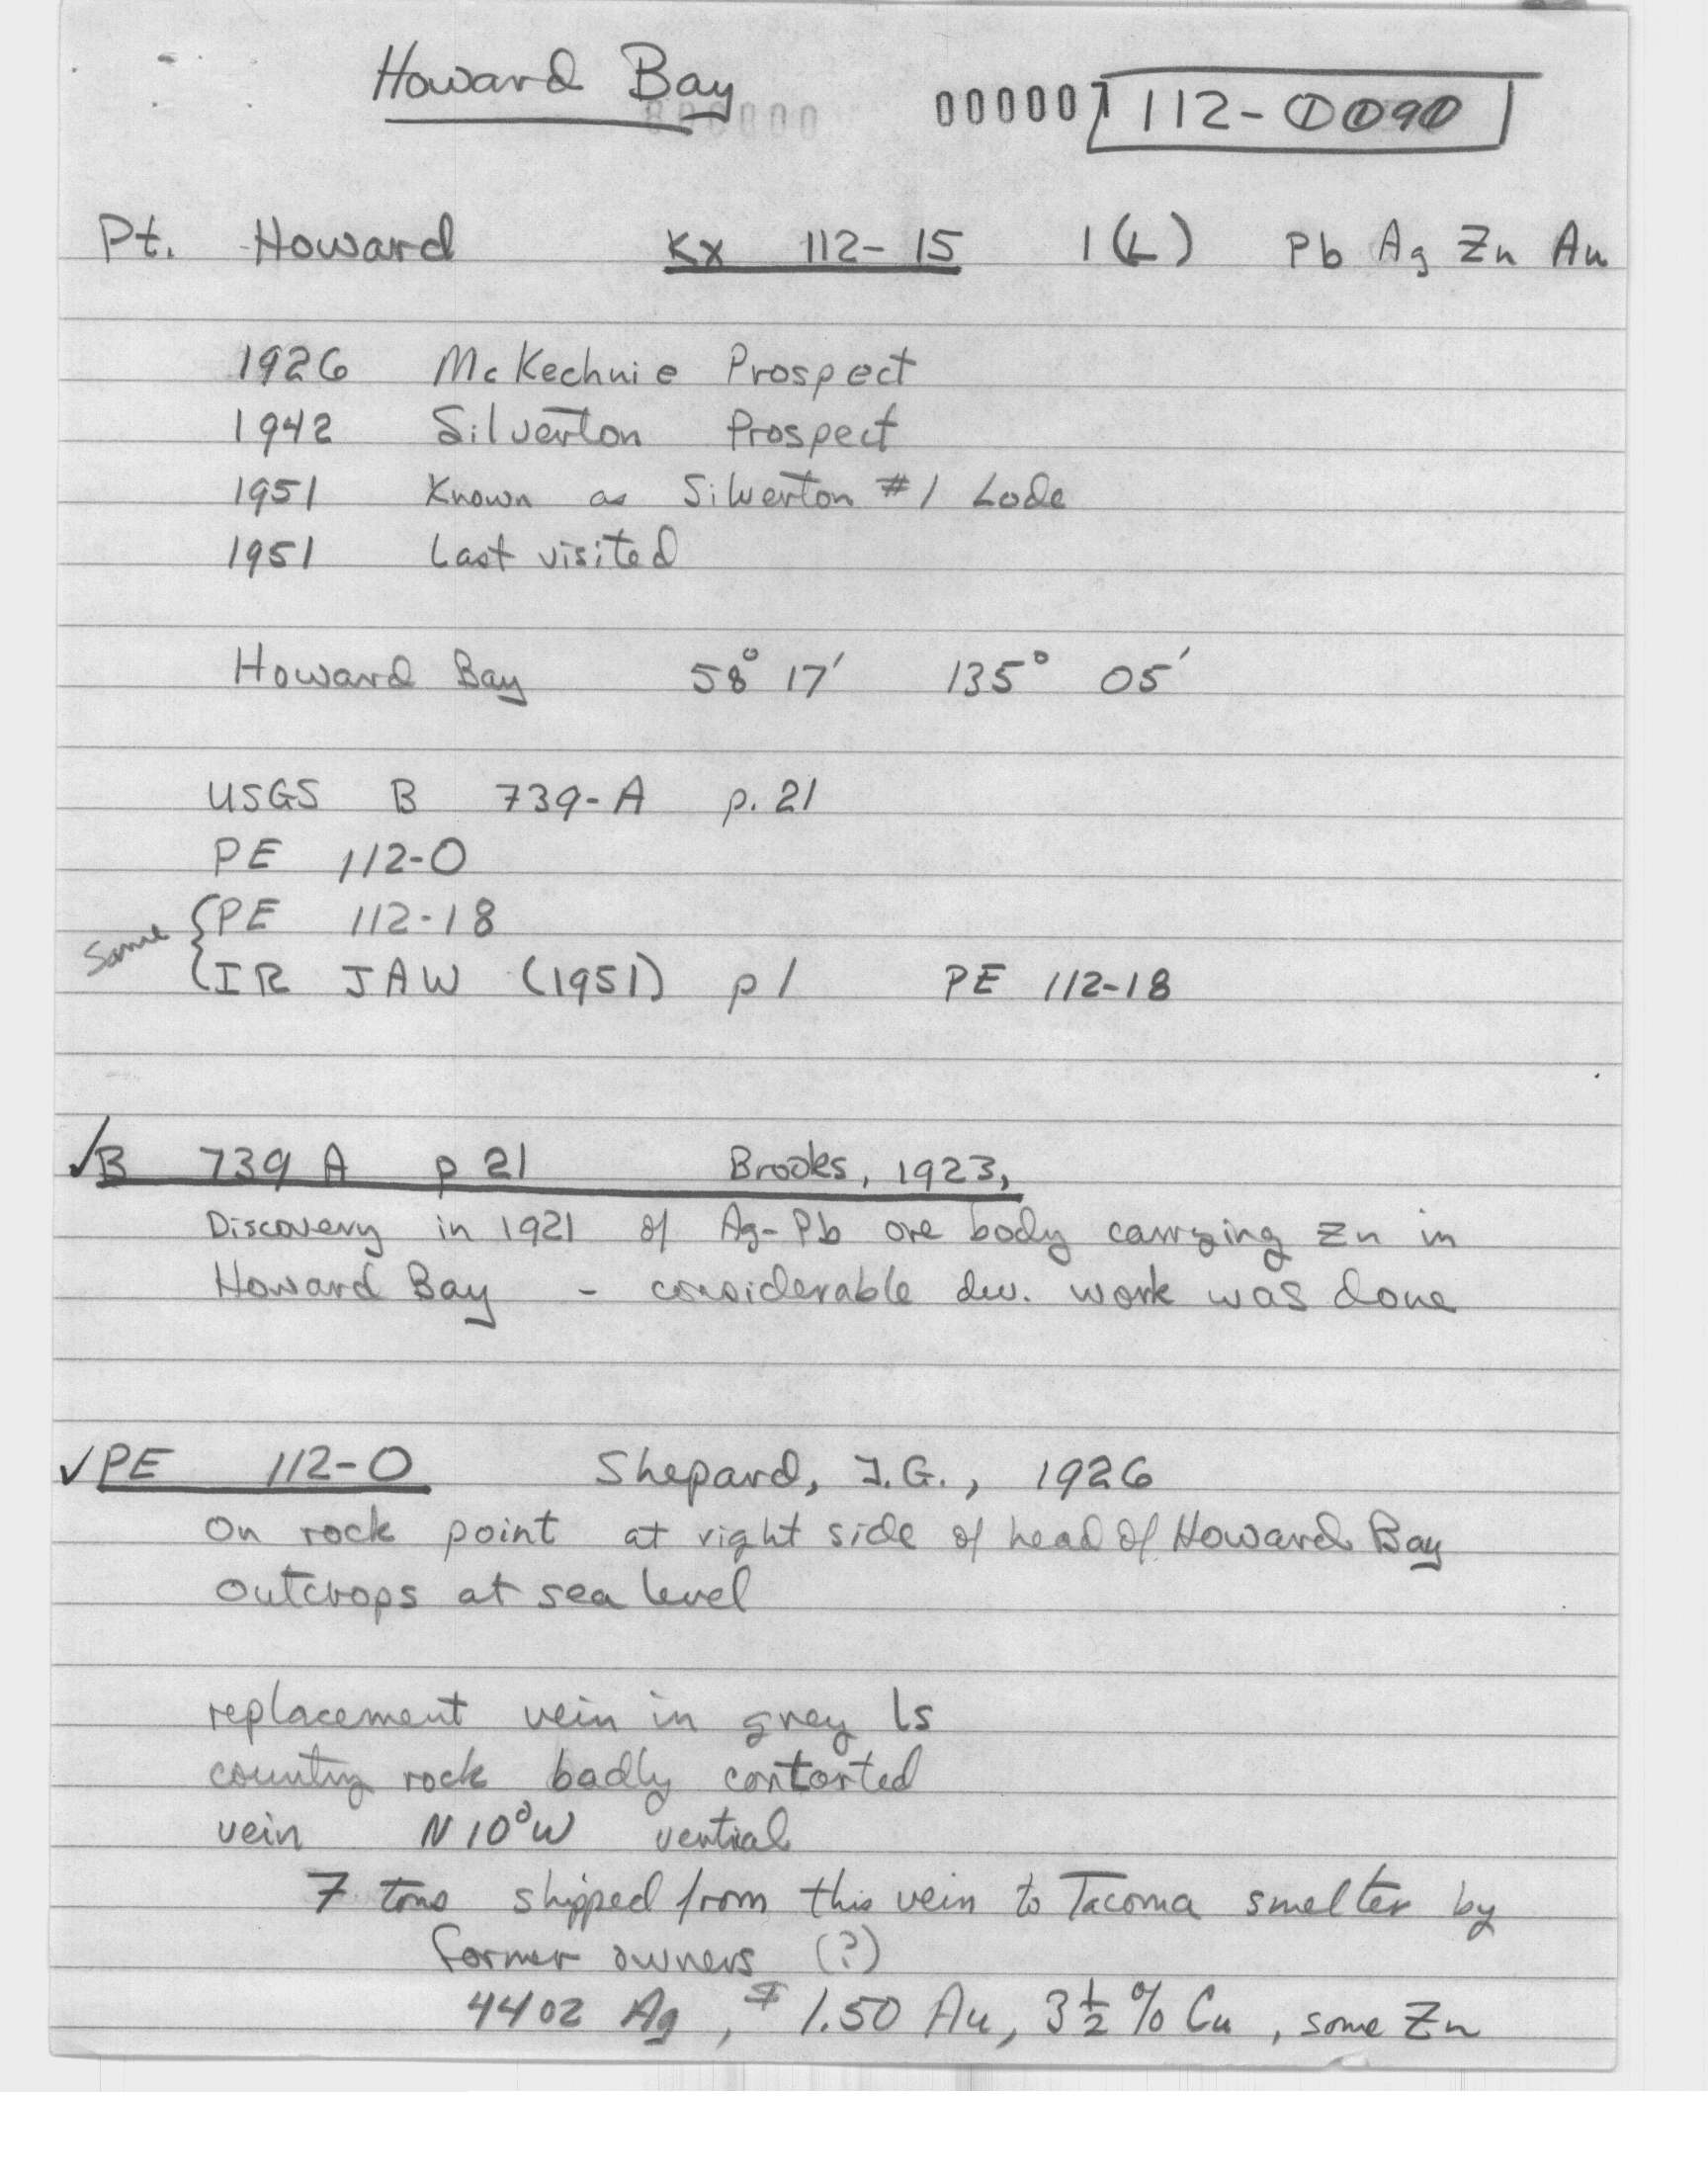 Howard Bay
000007 112-0090
Pt. Howard Kx 112-15 1(L) Pb Ag Zn Au
1926 McKechnie Prospect
1942 Silverton Prospect
1951 Known as Silverton #1 Lode
1951 Last visited
Howard Bay 58° 17' 135° 05'
USGS B 739-A p. 21
PE 112-0
Same { PE 112-18
IR JAW (1951) p 1 PE 112-18
✓B 739 A p 21 Brooks, 1923,
Discovery in 1921 of Ag-Pb ore body carrying Zn in
Howard Bay - considerable dev. work was done
✓PE 112-0 Shepard, J.G., 1926
On rock point at right side of head of Howard Bay
outcrops at sea level
replacement vein in grey ls
country rock badly contorted
vein N 10° W vertical
7 tons shipped from this vein to Tacoma smelter by
former owners (?)
44 oz Ag, $1.50 Au, 3 1/2 % Cu, some Zn